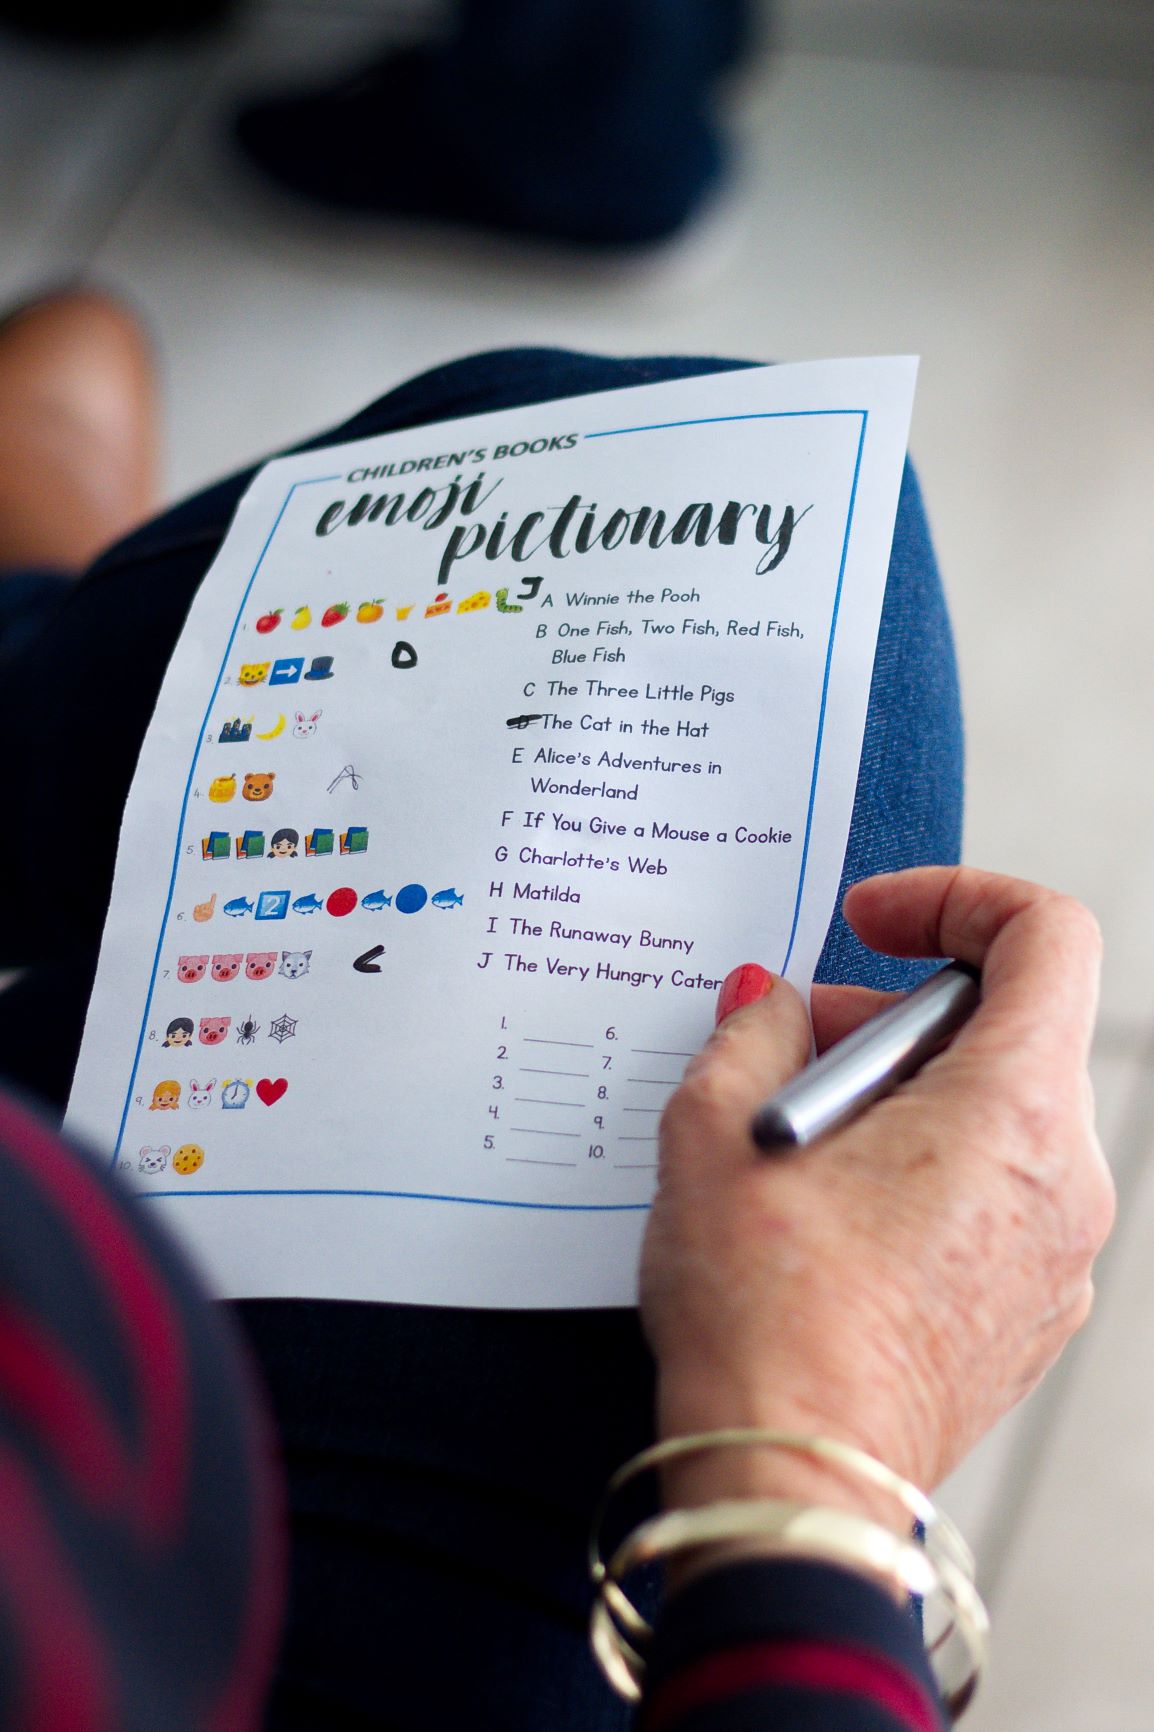 CHILDREN'S BOOKS
emoji
pictionary
1.
J
2.
D
3.
4.
A
5.
6.
2
7.
C
8.
9.
10.
A Winnie the Pooh
B One Fish, Two Fish, Red Fish,
Blue Fish
C The Three Little Pigs
D The Cat in the Hat
E Alice's Adventures in
Wonderland
F If You Give a Mouse a Cookie
G Charlotte's Web
H Matilda
I The Runaway Bunny
J The Very Hungry Cater
1.
2.
3.
4.
5.
6.
7.
8.
9.
10.